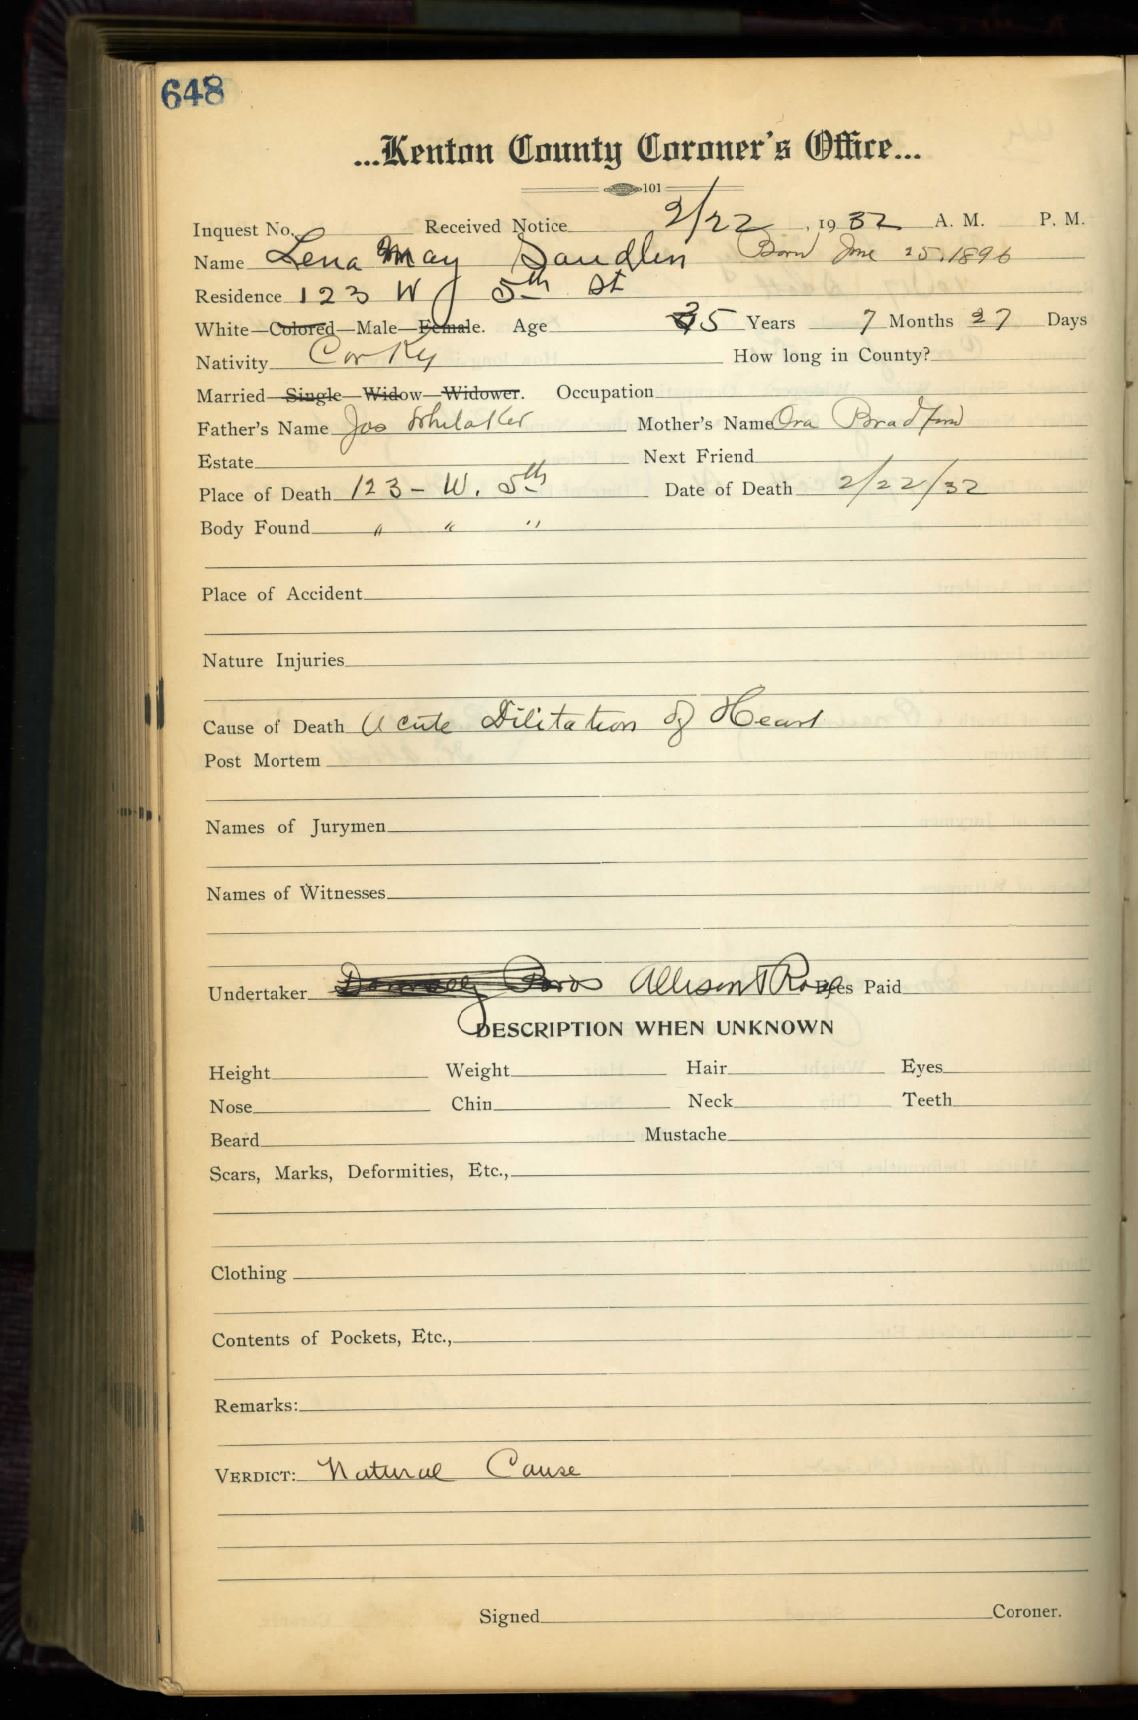 648
...Kenton County Coroner's Office...
101
Inquest No. Received Notice 2/22, 1932 A. M. P. M.
Name Lena May Sandlin Born June 25, 1896
Residence 123 W 5th St
White—Colored—Male—Female. Age 35 Years 7 Months 27 Days
Nativity Cov Ky How long in County?
Married—Single—Widow—Widower. Occupation
Father's Name Jos Whitaker Mother's Name Ora Bradford
Estate Next Friend
Place of Death 123 - W. 5th Date of Death 2/22/32
Body Found " " "
Place of Accident
Nature Injuries
Cause of Death Acute Dilitation of Heart
Post Mortem
Names of Jurymen
Names of Witnesses
Undertaker Donnelly Bros Allison & Rose Fees Paid
DESCRIPTION WHEN UNKNOWN
Height Weight Hair Eyes
Nose Chin Neck Teeth
Beard Mustache
Scars, Marks, Deformities, Etc.,
Clothing
Contents of Pockets, Etc.,
Remarks:
VERDICT: Natural Cause
Signed Coroner.